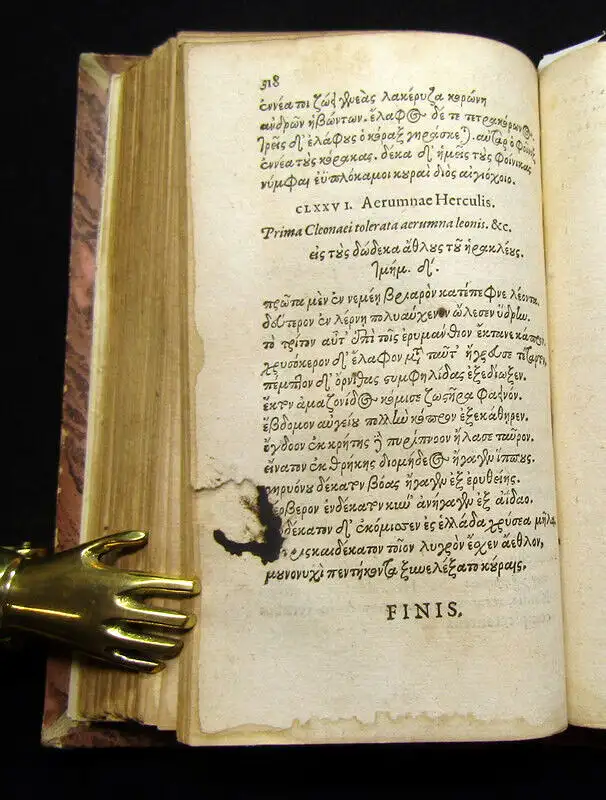 318
ἐννέα τοι ζώει γενεὰς λακέρυζα κορώνη
ἀνδρῶν ἡβώντων. ἔλαφος δέ τε τετρακόρωνος.
τρεῖς δ' ἐλάφους ὁ κόραξ γηράσκεται. αὐτὰρ ὁ φοῖνιξ
ἐννέα τοὺς κόρακας. δέκα δ' ἡμεῖς τοὺς φοίνικας
νύμφαι ἐϋπλόκαμοι κοῦραι διὸς αἰγιόχοιο.
CLXXVI. Aerumnae Herculis.
Prima Cleonaei tolerata aerumna leonis. &c.
εἰς τοὺς δώδεκα ἄθλους τοῦ ἡρακλέους.
πρῶτα μὲν ἐν νεμέῃ βριαρὸν κατέπεφνε λέοντα.
δεύτερον ἐν λέρνῃ πολυαύχενον ὤλεσεν ὕδραν.
τὸ τρίτον αὖτ' ἐπὶ τοῖς ἐρυμάνθιον ἔκτανε κάπρον.
χρυσόκερον δ' ἔλαφον μετὰ ταῦτ' ἤγρευσε τέταρτον.
πέμπτον δ' ὄρνιθας στυμφηλίδας ἐξεδίωξεν.
ἕκτον ἀμαζονίδος κόμισε ζωστῆρα φαεινόν.
ἕβδομον αὐγείου πολλὴν κόπρον ἐξεκάθηρεν.
ὄγδοον ἐκ κρήτης πυρίπνοον ἤλασε ταῦρον.
εἴνατον ἐκ θρήκης διομήδεος ἤγαγεν ἵππους.
γηρυόνου δέκατον βόας ἤγαγεν ἐξ ἐρυθείης.
κέρβερον ἑνδέκατον κύν' ἀνήγαγεν ἐξ ἀΐδαο.
δωδέκατον δ' ἐκόμισσεν ἐς ἑλλάδα χρύσεα μῆλα.
τρισκαιδέκατον τοῖον λυγρὸν ἔσχεν ἄεθλον,
μουνονυχὶ πεντήκοντα ξυνελέξατο κούραις.
FINIS.